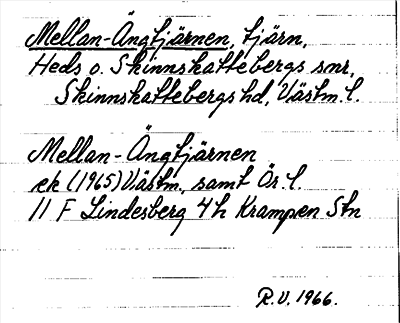 Mellan-Ängtjärnen, tjärn,
Heds o. Skinnskattebergs snr,
Skinnskattebergs hd, Västm. l.
Mellan-Ängtjärnen
ek (1965) Västm. samt Ör. l.
11 F Lindesberg 4h Krampen Stn
R.V. 1966.